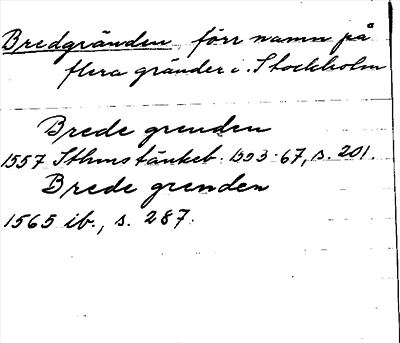 Bredgränden förr namn på
flera gränder i Stockholm
Brede grenden
1557 Sthms tänkeb. 1553-67, s. 201.
Brede grenden
1565 ib., s. 287.